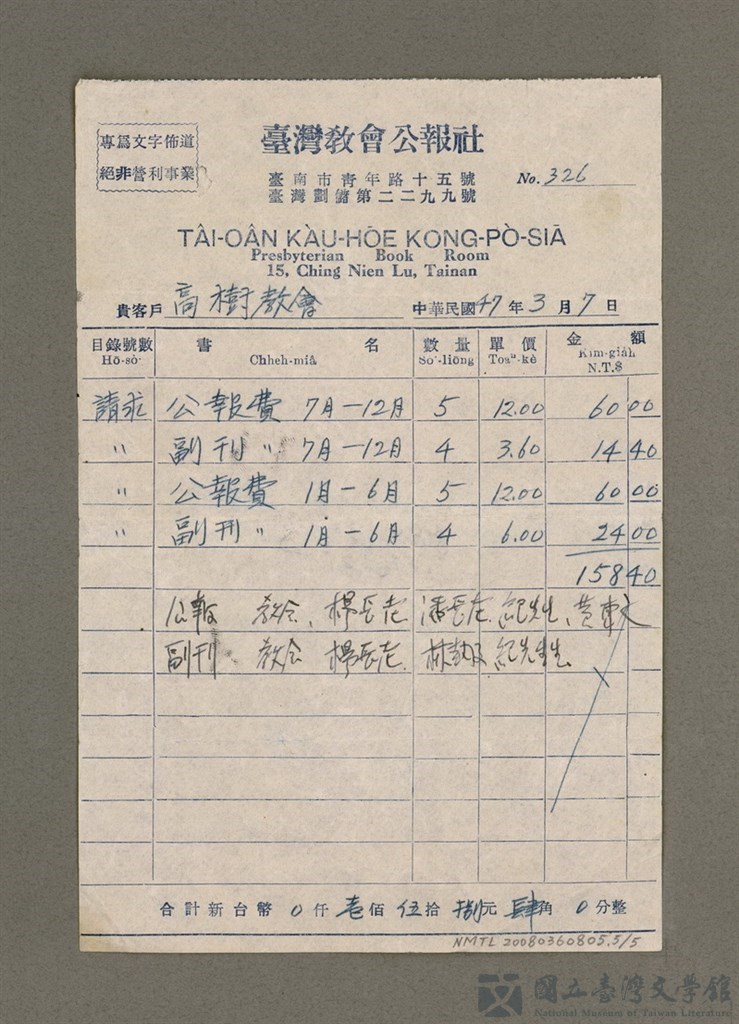 專爲文字佈道
絕非營利事業
臺灣敎會公報社
臺南市靑年路十五號
臺灣劃儲第二二九九號
No. 326
TÂI-OÂN KÀU-HŌE KONG-PÒ-SIĀ
Presbyterian Book Room
15, Ching Nien Lu, Tainan
貴客戶 高樹敎會 中華民國47年3月7日
目錄號數 書名 數量 單價 金額
Hō-sò· Chheh-miâ Sò·-liōng Toaⁿ-kè Kim-giah
N.T.$
請求 公報費 7月-12月 5 12.00 60 00
〃 副刊〃 7月-12月 4 3.60 14 40
〃 公報費 1月-6月 5 12.00 60 00
〃 副刊〃 1月-6月 4 6.00 24 00
158 40
公報 教会、楊長老 潘長老、紀先生、黃東文
副刊 教会 楊長老、林 紀先生
合計新台幣 0仟壹佰伍拾捌元肆角0分整
NMTL 20080360805.5/5
國立臺灣文學館
National Museum of Taiwan Literature